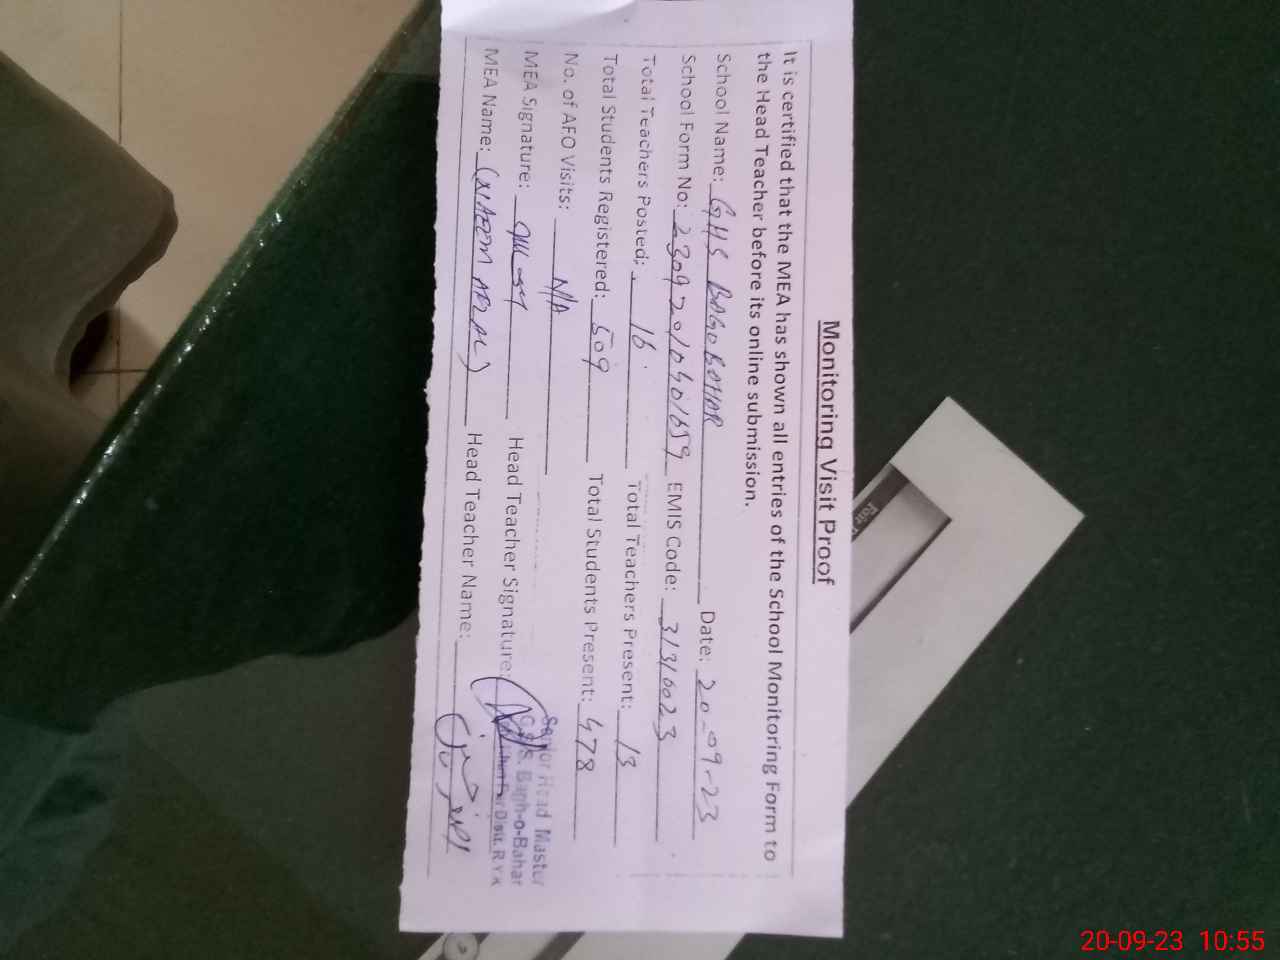 Monitoring Visit Proof
It is certified that the MEA has shown all entries of the School Monitoring Form to
the Head Teacher before its online submission.
School Name: GHS BAGOBAHAR Date: 20-09-23
School Form No: EMIS Code: 31316023
Total Teachers Posted: 16 Total Teachers Present: 13
Total Students Registered: 509 Total Students Present: 478
No. of AFO Visits: N/A
MEA Signature: Head Teacher Signature:
MEA Name: Head Teacher Name:
Senior Head Master
G.H.S. Bagh-o-Bahar
Distt. R.Y.K
20-09-23 10:55